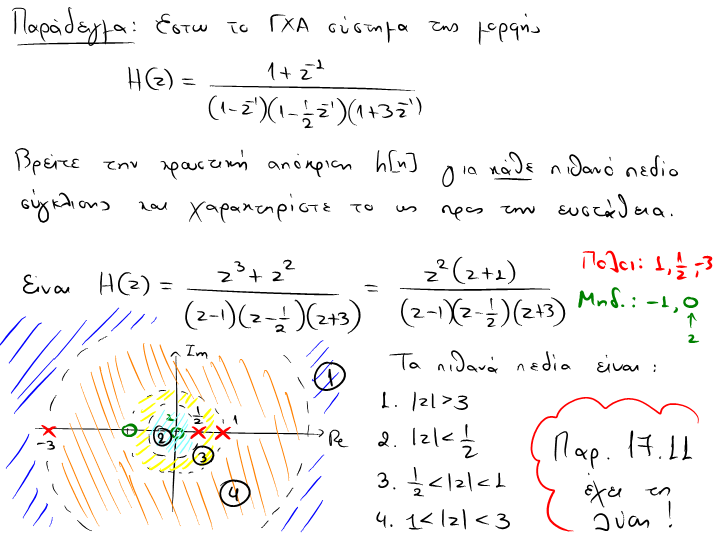 Παράδειγμα: Έστω το ΓΧΑ σύστημα της μορφής
H(z) = (1 + z⁻¹) / ((1 - z⁻¹)(1 - ½z⁻¹)(1 + 3z⁻¹))
Βρείτε την κρουστική απόκριση h[n] για κάθε πιθανό πεδίο
σύγκλισης και χαρακτηρίστε το ως προς την ευστάθεια.
Είναι H(z) = (z³ + z²) / ((z-1)(z-½)(z+3)) = z²(z+1) / ((z-1)(z-½)(z+3))
Πόλοι: 1, ½, -3
Μηδ.: -1, 0
↑
2
Im
1
2
½
1
-3
2
3
Re
4
Τα πιθανά πεδία είναι:
1. |z| > 3
2. |z| < ½
3. ½ < |z| < 1
4. 1 < |z| < 3
Παρ. 17.11
έχει τη
λύση!